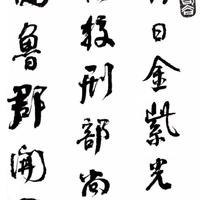 日金紫光
校刑部尚
魯郡開